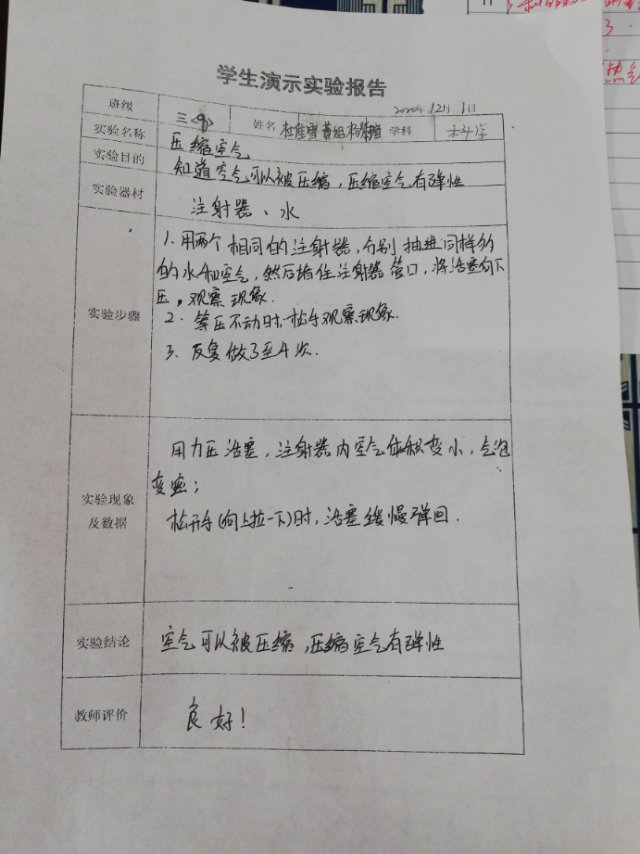 学生演示实验报告
2020年12月1日
班级 三<8> 姓名 学科
实验名称 压缩空气
实验目的 知道空气可以被压缩，压缩空气有弹性
实验器材 注射器、水
实验步骤
1. 用两个相同的注射器，分别抽进同样多
的水和空气，然后堵住注射器管口，将活塞向下
压。观察现象.
2. 等压不动时松手观察现象.
3. 反复做3至4次.
实验现象
及数据
用力压活塞，注射器内空气体积变小，气泡
变
松开手(向上拉一下)时，活塞缓慢弹回.
实验结论 空气可以被压缩，压缩空气有弹性
教师评价 良好！